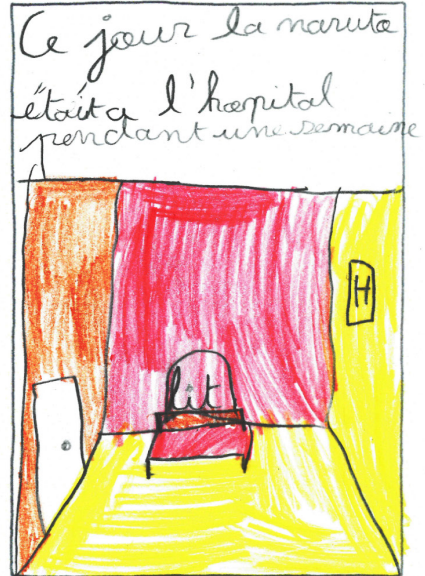 Ce jour la naruto
était a l'hopital
pendant une semaine
H
lit